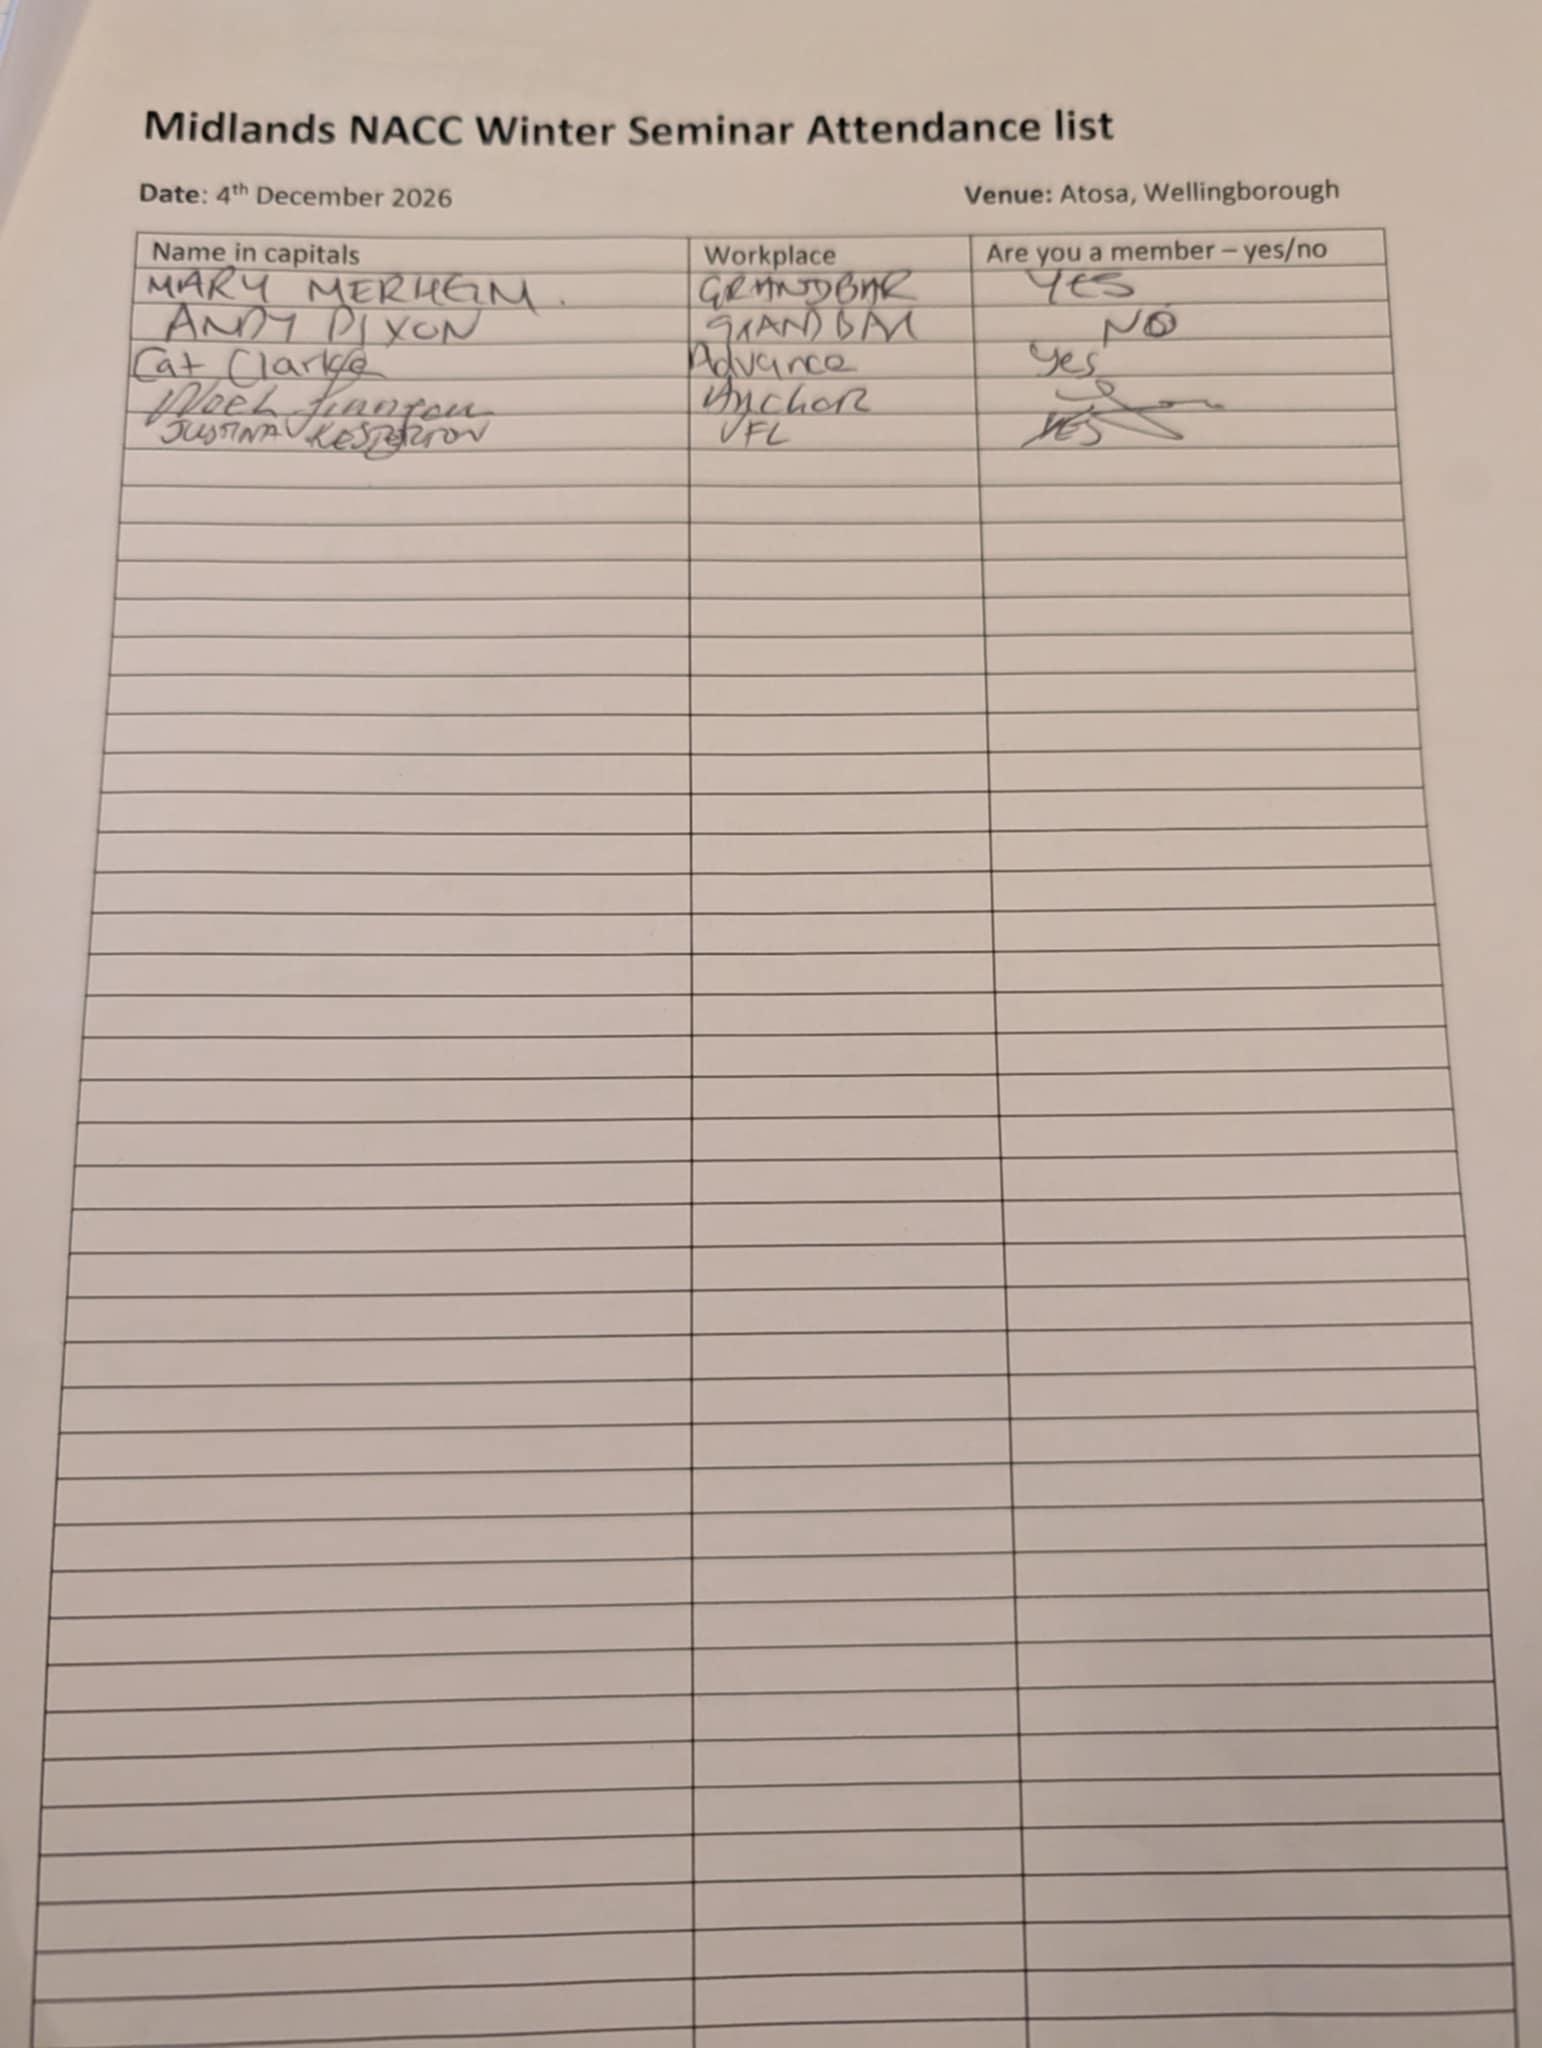 Midlands NACC Winter Seminar Attendance list
Date: 4th December 2026 Venue: Atosa, Wellingborough
Name in capitals Workplace Are you a member – yes/no
MARY GRANDBAR YES
ANDY DIXON GRANDBAR NO
Cat Clarke Advance Yes
Anchor
JUSTINA VFL YES